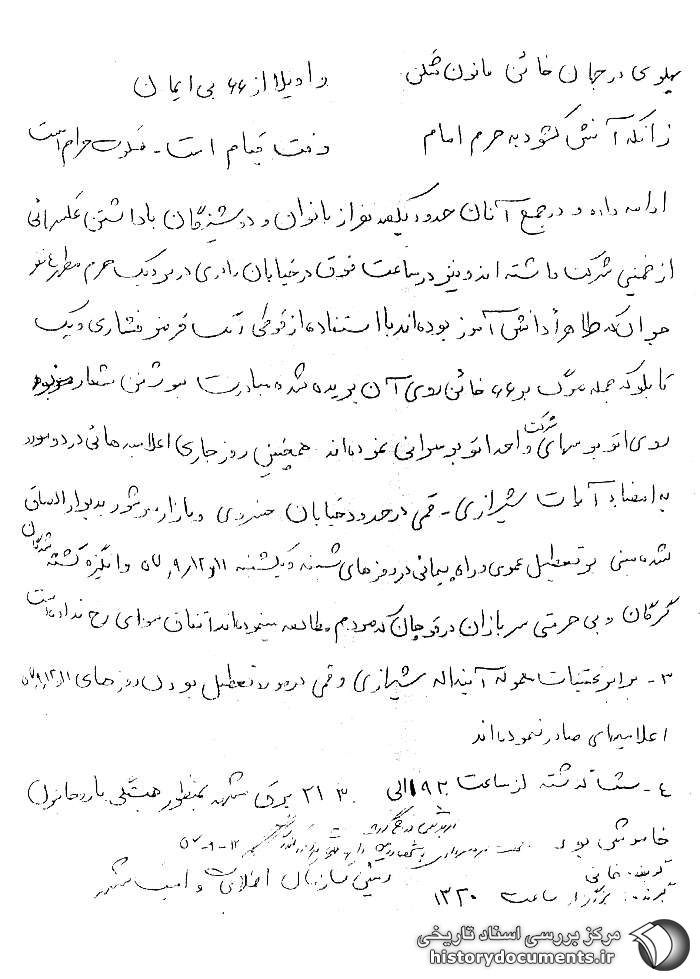 پهلوی در جهان خائن قانون شکن واویلا از ۶۶ بی ایمان
زانکه آتش گشود به حرم امام وقت قیام است - سکوت حرام است
ادامه داده و در جمع آنان حدود یکصد نفر از بانوان و دوشیزگان با داشتن عکسهائی
از خمینی شرکت داشته اند و نیز در ساعت فوق در خیابان رازی در نزدیک حرم مطهر
جوان که ظاهراً دانش آموز بوده‌اند با استفاده از قوطی رنگ قرمز فشاری و یک
تابلو که جمله مرگ بر ۶۶ خائن روی آن بریده شده مبادرت به نوشتن شعار مزبور
روی اتوبوسهای شرکت واحد اتوبوسرانی نموده‌اند همچنین روز جاری اعلامیه هائی در دو مورد
به امضاء آیات شیرازی - قمی در حدود خیابان خسروی و بازار سرشور به دیوار الصاق
شده مبنی بر تعطیل عمومی و راه پیمائی در روزهای شنبه و یکشنبه ۱۱و۵۷٫۹٫۱۲ وانگیزه کشته شدگان
گرگان و بی حرمتی سربازان در قوچان که مردم مطالعه مینموده‌اند اتفاق سوای رخ نداده است
۳- برابر تحقیقات معموله آیت اله شیرازی و قمی در مورد تعطیل بودن روزهای ۱۱و۵۷٫۹٫۱۲
اعلامیه‌ای صادر ننموده‌اند
٤- شب گذشته از ساعت ۱۹۳۰ الی ۲۱۳۰ برق مشهد بمنظور همبستگی با روحانیون
خاموش بود ۱۲-۹-۵۷
رئیس سازمان اطلاعات و امنیت مشهد
گوینده: نجاتی
گیرنده: ساعت ۱۳۲۰
مرکز بررسی اسناد تاریخی
historydocuments.ir